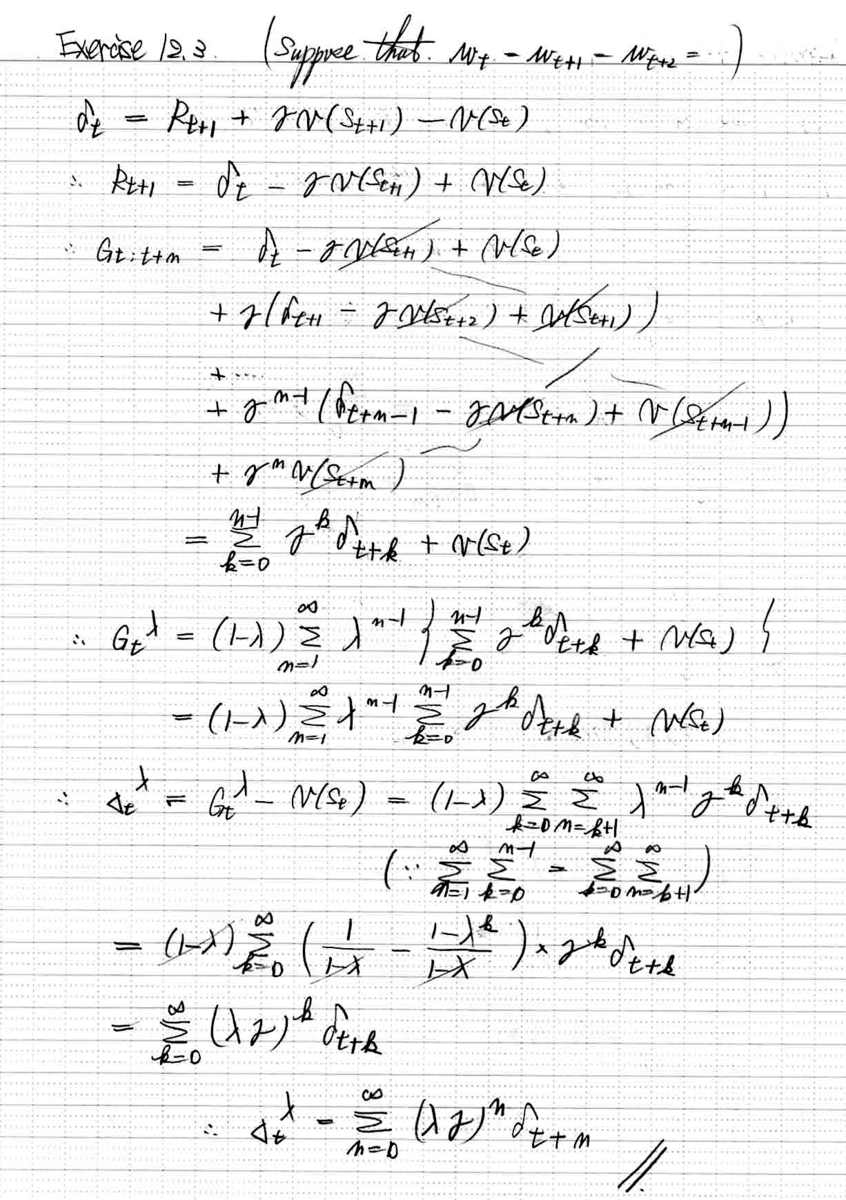 Exercise 12.3. (Suppose that. w_t = w_{t+1} = w_{t+2} = ...)
δ_t = R_{t+1} + γV(S_{t+1}) − V(S_t)
∴ R_{t+1} = δ_t − γV(S_{t+1}) + V(S_t)
∴ G_{t:t+n} = δ_t − γV(S_{t+1}) + V(S_t)
+ γ(δ_{t+1} − γV(S_{t+2}) + V(S_{t+1}))
+ ....
+ γ^{n−1}(δ_{t+n−1} − γV(S_{t+n}) + V(S_{t+n−1}))
+ γ^n V(S_{t+n})
= Σ_{k=0}^{n−1} γ^k δ_{t+k} + V(S_t)
∴ G_t^λ = (1−λ) Σ_{n=1}^{∞} λ^{n−1} { Σ_{k=0}^{n−1} γ^k δ_{t+k} + V(S_t) }
= (1−λ) Σ_{n=1}^{∞} λ^{n−1} Σ_{k=0}^{n−1} γ^k δ_{t+k} + V(S_t)
∴ Δ_t^λ = G_t^λ − V(S_t) = (1−λ) Σ_{k=0}^{∞} Σ_{n=k+1}^{∞} λ^{n−1} γ^k δ_{t+k}
(∵ Σ_{n=1}^{∞} Σ_{k=0}^{n−1} = Σ_{k=0}^{∞} Σ_{n=k+1}^{∞})
= (1−λ) Σ_{k=0}^{∞} ( 1/(1−λ) − (1−λ^k)/(1−λ) ) × γ^k δ_{t+k}
= Σ_{k=0}^{∞} (λγ)^k δ_{t+k}
∴ Δ_t^λ = Σ_{n=0}^{∞} (λγ)^n δ_{t+n} //